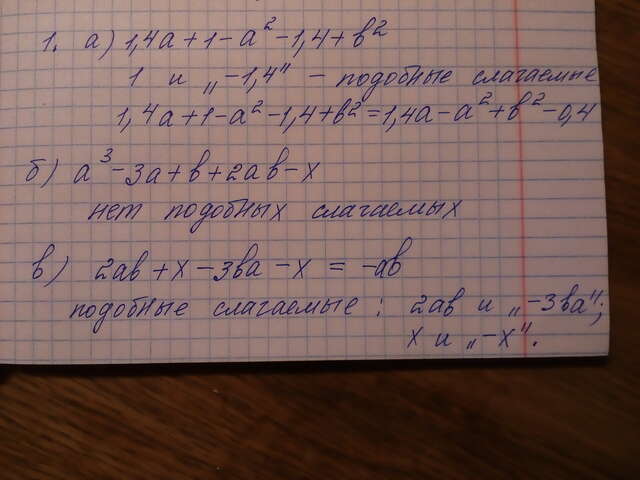 1. а) 1,4a + 1 - a² - 1,4 + b²
1 и „-1,4" - подобные слагаемые
1,4a + 1 - a² - 1,4 + b² = 1,4a - a² + b² - 0,4
б) a³ - 3a + b + 2ab - x
нет подобных слагаемых
в) 2ab + x - 3ba - x = -ab
подобные слагаемые : 2ab и „-3ba";
x и „-x".